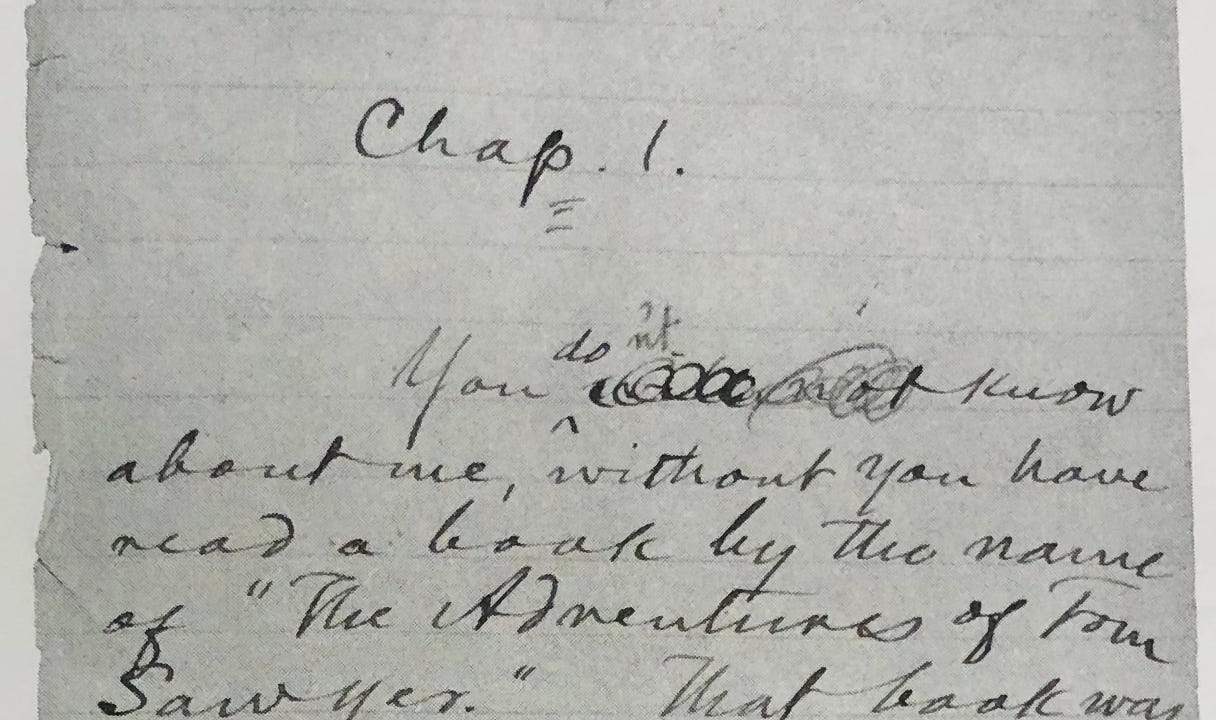 Chap. 1.
do n't
You not know
about me, without you have
read a book by the name
of "The Adventures of Tom
Sawyer." That book was